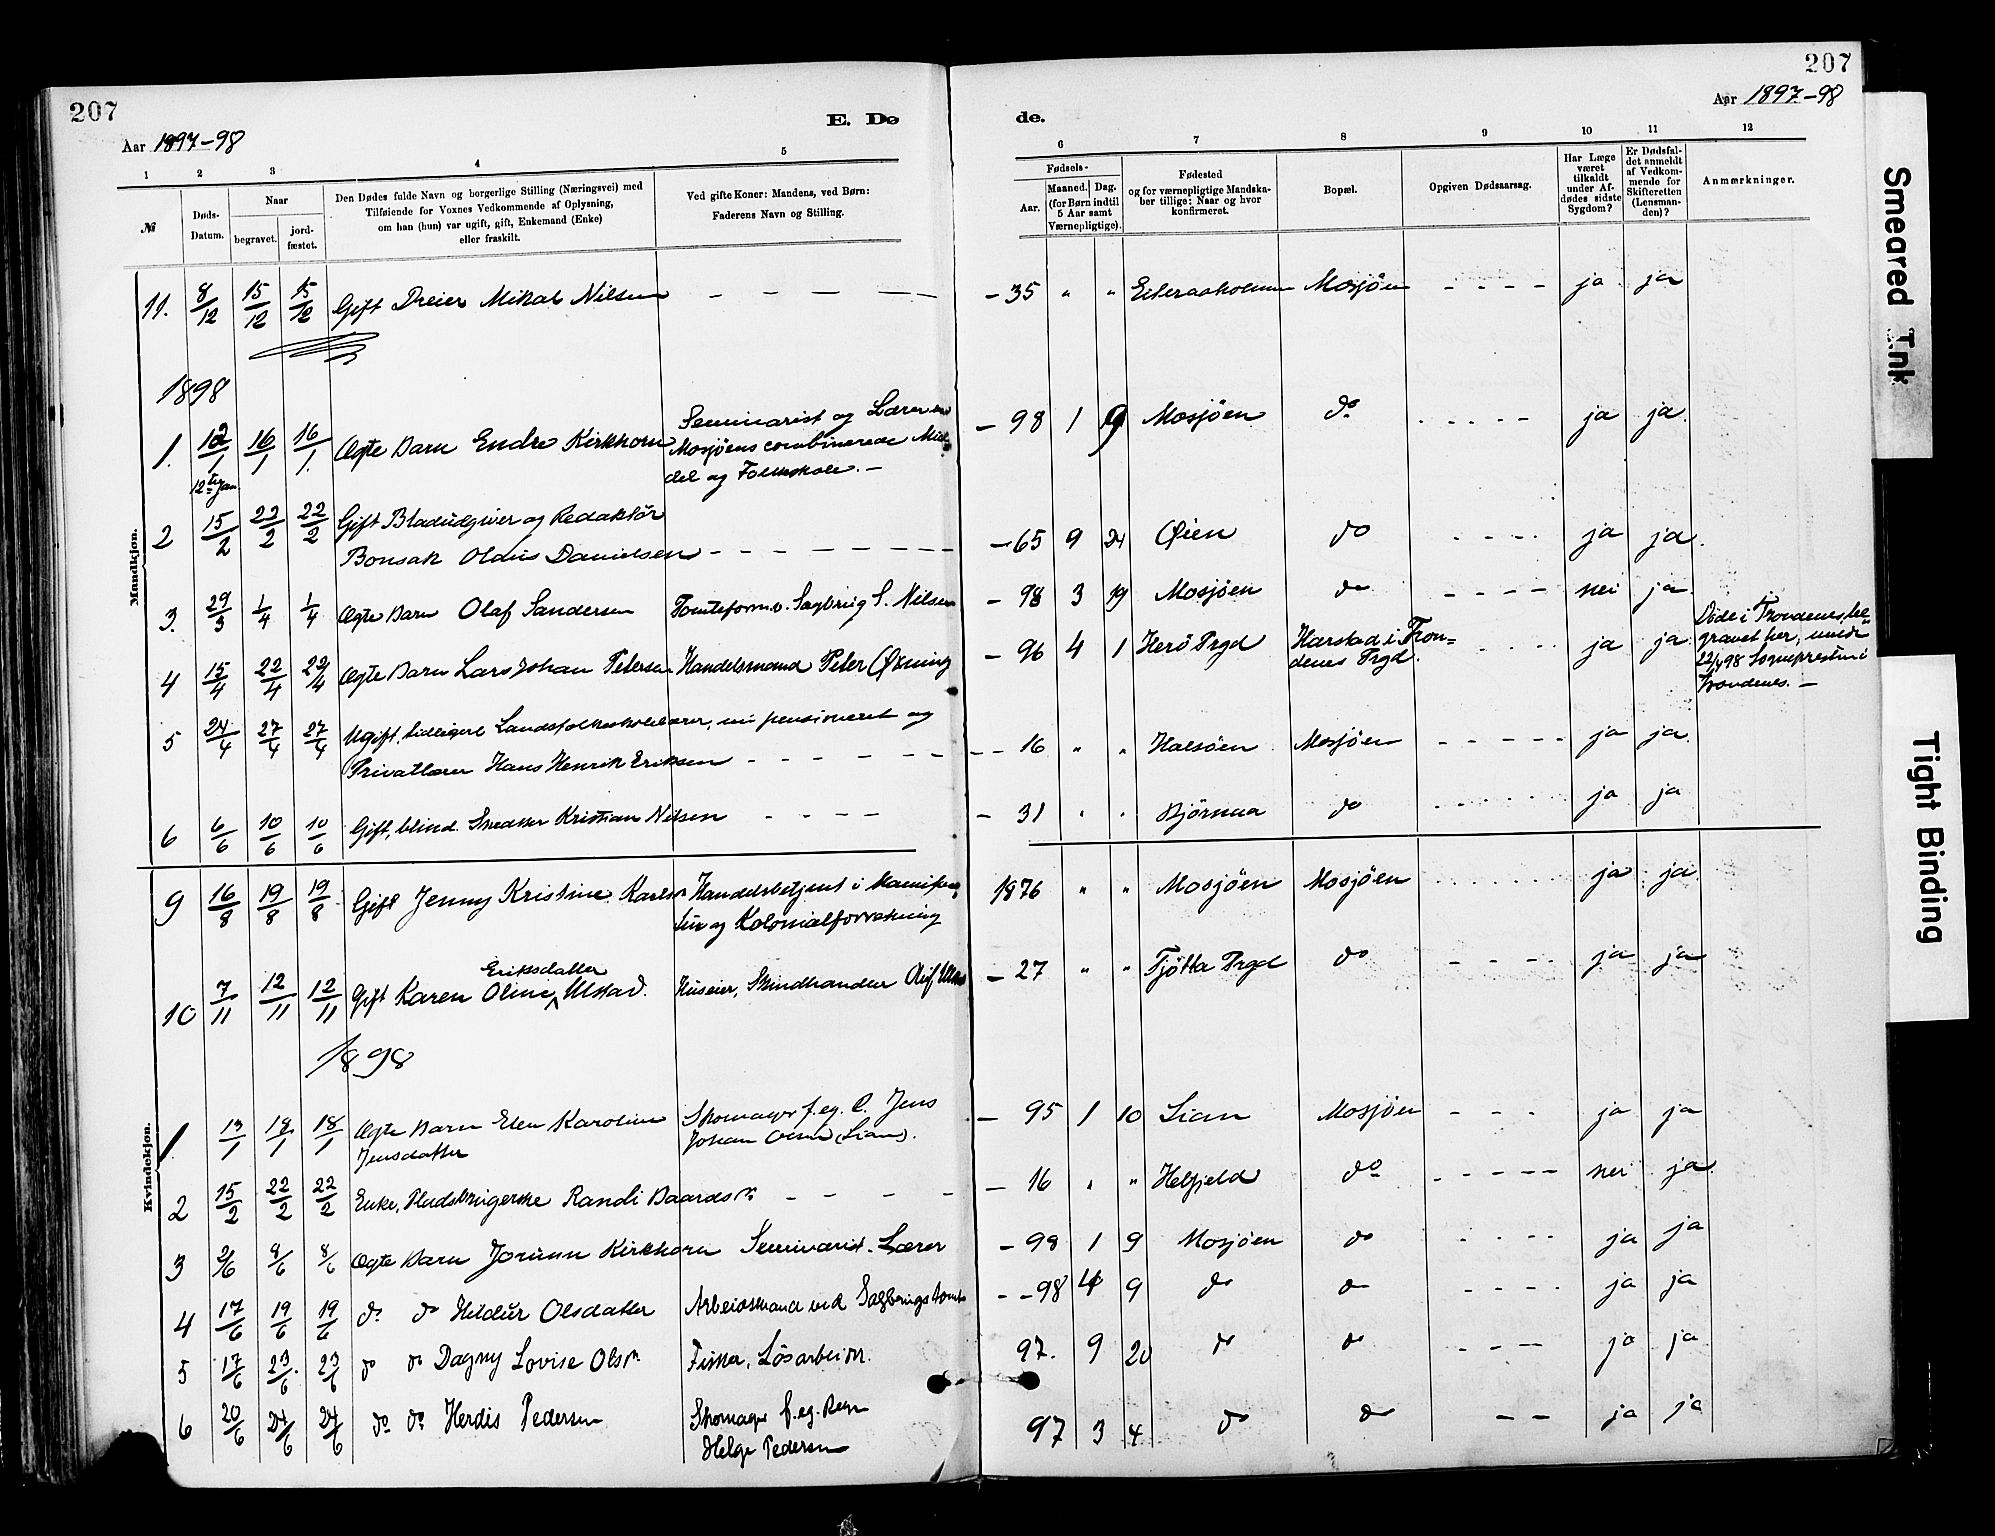 207
207
Aar 1897-98
E. Dø
de.
Aar 1897-98
1 2 3 4 5 6 7 8 9 10 11 12
№
Døds-
Datum.
Naar
begravet.
jord-
fæstet.
Den Dødes fulde Navn og borgerlige Stilling (Næringsvei) med
Tilføiende for Voxnes Vedkommende af Oplysning,
om han (hun) var ugift, gift, Enkemand (Enke)
eller fraskilt.
Ved gifte Koner: Mandens, ved Børn:
Faderens Navn og Stilling.
Fødsels-
Aar.
Maaned. Dag.
(for Børn indtil
5 Aar samt
Værnepligtige).
Fødested
og for værnepligtige Mandska-
ber tillige: Naar og hvor
konfirmeret.
Bopæl.
Opgiven Dødsaarsag.
Har Læge
været
tilkaldt
under Af-
dødes sidste
Sygdom?
Er Dødsfal-
det anmeldt
af Vedkom-
mende for
Skifteretten
(Lensman-
den)?
Anmærkninger.
Mandkjøn.
11. 8/12 15/12 15/12 Gift Dreier Mikal Nilsen - - - - - - 35 " " Mosjöen - - - - ja ja
1898
Seminarist og Lærer
1. 12/1 16/1 16/1. Ægte Barn Endre Kirkhorn Mosjöens combinerede Mid - 98 1 9 Mosjöen do - - - - - ja ja.
12te Jan. del og Folkeskole. -
2 15/2 22/2 22/2 Gift Bladudgiver og Redaktör - 65 9 24 Øien do - - - - ja ja.
Bonsak Olaus Danielsen - - - - - - - -
3. 29/3 1/4 1/4 Ægte Barn Olaf Sandersen Tomteform. v. Sagbrug S. Nilsen - 98 3 19 Mosjöen do - - - - nei ja
4 15/4 22/4 22/4 Ægte Barn Lars Johan Petersen Handelsmand Peter Øxning - 96 4 1 Herö Prgd Harstad i Tron=
denes Prgd. - - - - ja ja
Döde i Trondenes, be
gravet her, under
22/4 98 Sognepresten i
Trondenes. -
5 24/4 27/4 27/4 Ugift, tidligere Landsfolkeskolelærer, nu pensioneret og - - 16 " " Halsöen Mosjöen - - - - - ja ja.
Privatlærer Hans Henrik Eriksen - - - - - -
6 6/6 10/6 10/6 Gift, blind. Snedker Kristian Nilsen - - - - - 31 " " Björnaa do - - - - - ja ja
Kvindekjøn.
9 16/8 19/8 19/8 Gift Jenny Kristine Karlsn Handelsbetjent i Manifak 1876 " " Mosjöen Mosjöen - - - - - ja ja.
tur og Kolonialforretning
Eriksdatter
10 7/11 12/11 12/11 Gift Karen Oline Ulstad. Huseier, Skindhandler - 27 " " Tjötta Prgd do - - - - ja ja
1898
1 13/1 18/1 18/1 Ægte Barn Elen Karoline Skomager f. eg. R. Jens - 95 1 10 Lian Mosjöen - - - ja ja
Jensdatter Johan Olsen (Lian).
2 15/2 22/2 22/2 Enke, Pladsbrugerske Randi Baardsn. - - - - - 16 " " Helfjeld do - - - - nei ja.
3 2/6 8/6 8/6 Ægte Barn Jorunn Kirkhorn Seminarist. Lærer - 98 1 9 Mosjöen do - - - - ja ja
4 17/6 19/6 19/6 do do Hildur Olsdatter Arbeidsmand ved Sagbrugstomt - - 98 4 9 do do - - - - ja ja
5 17/6 23/6 23/6 do do Dagny Lovise Olsn. Fisker, Lösarbeider. 97. 9 20 do do - - - ja ja
6 20/6 24/6 24/6 do do Herdis Pedersen Skomager f. eg. Regn 97 3 4 do do - - ja ja
Helge Pedersen
Smeared Ink
Tight Binding